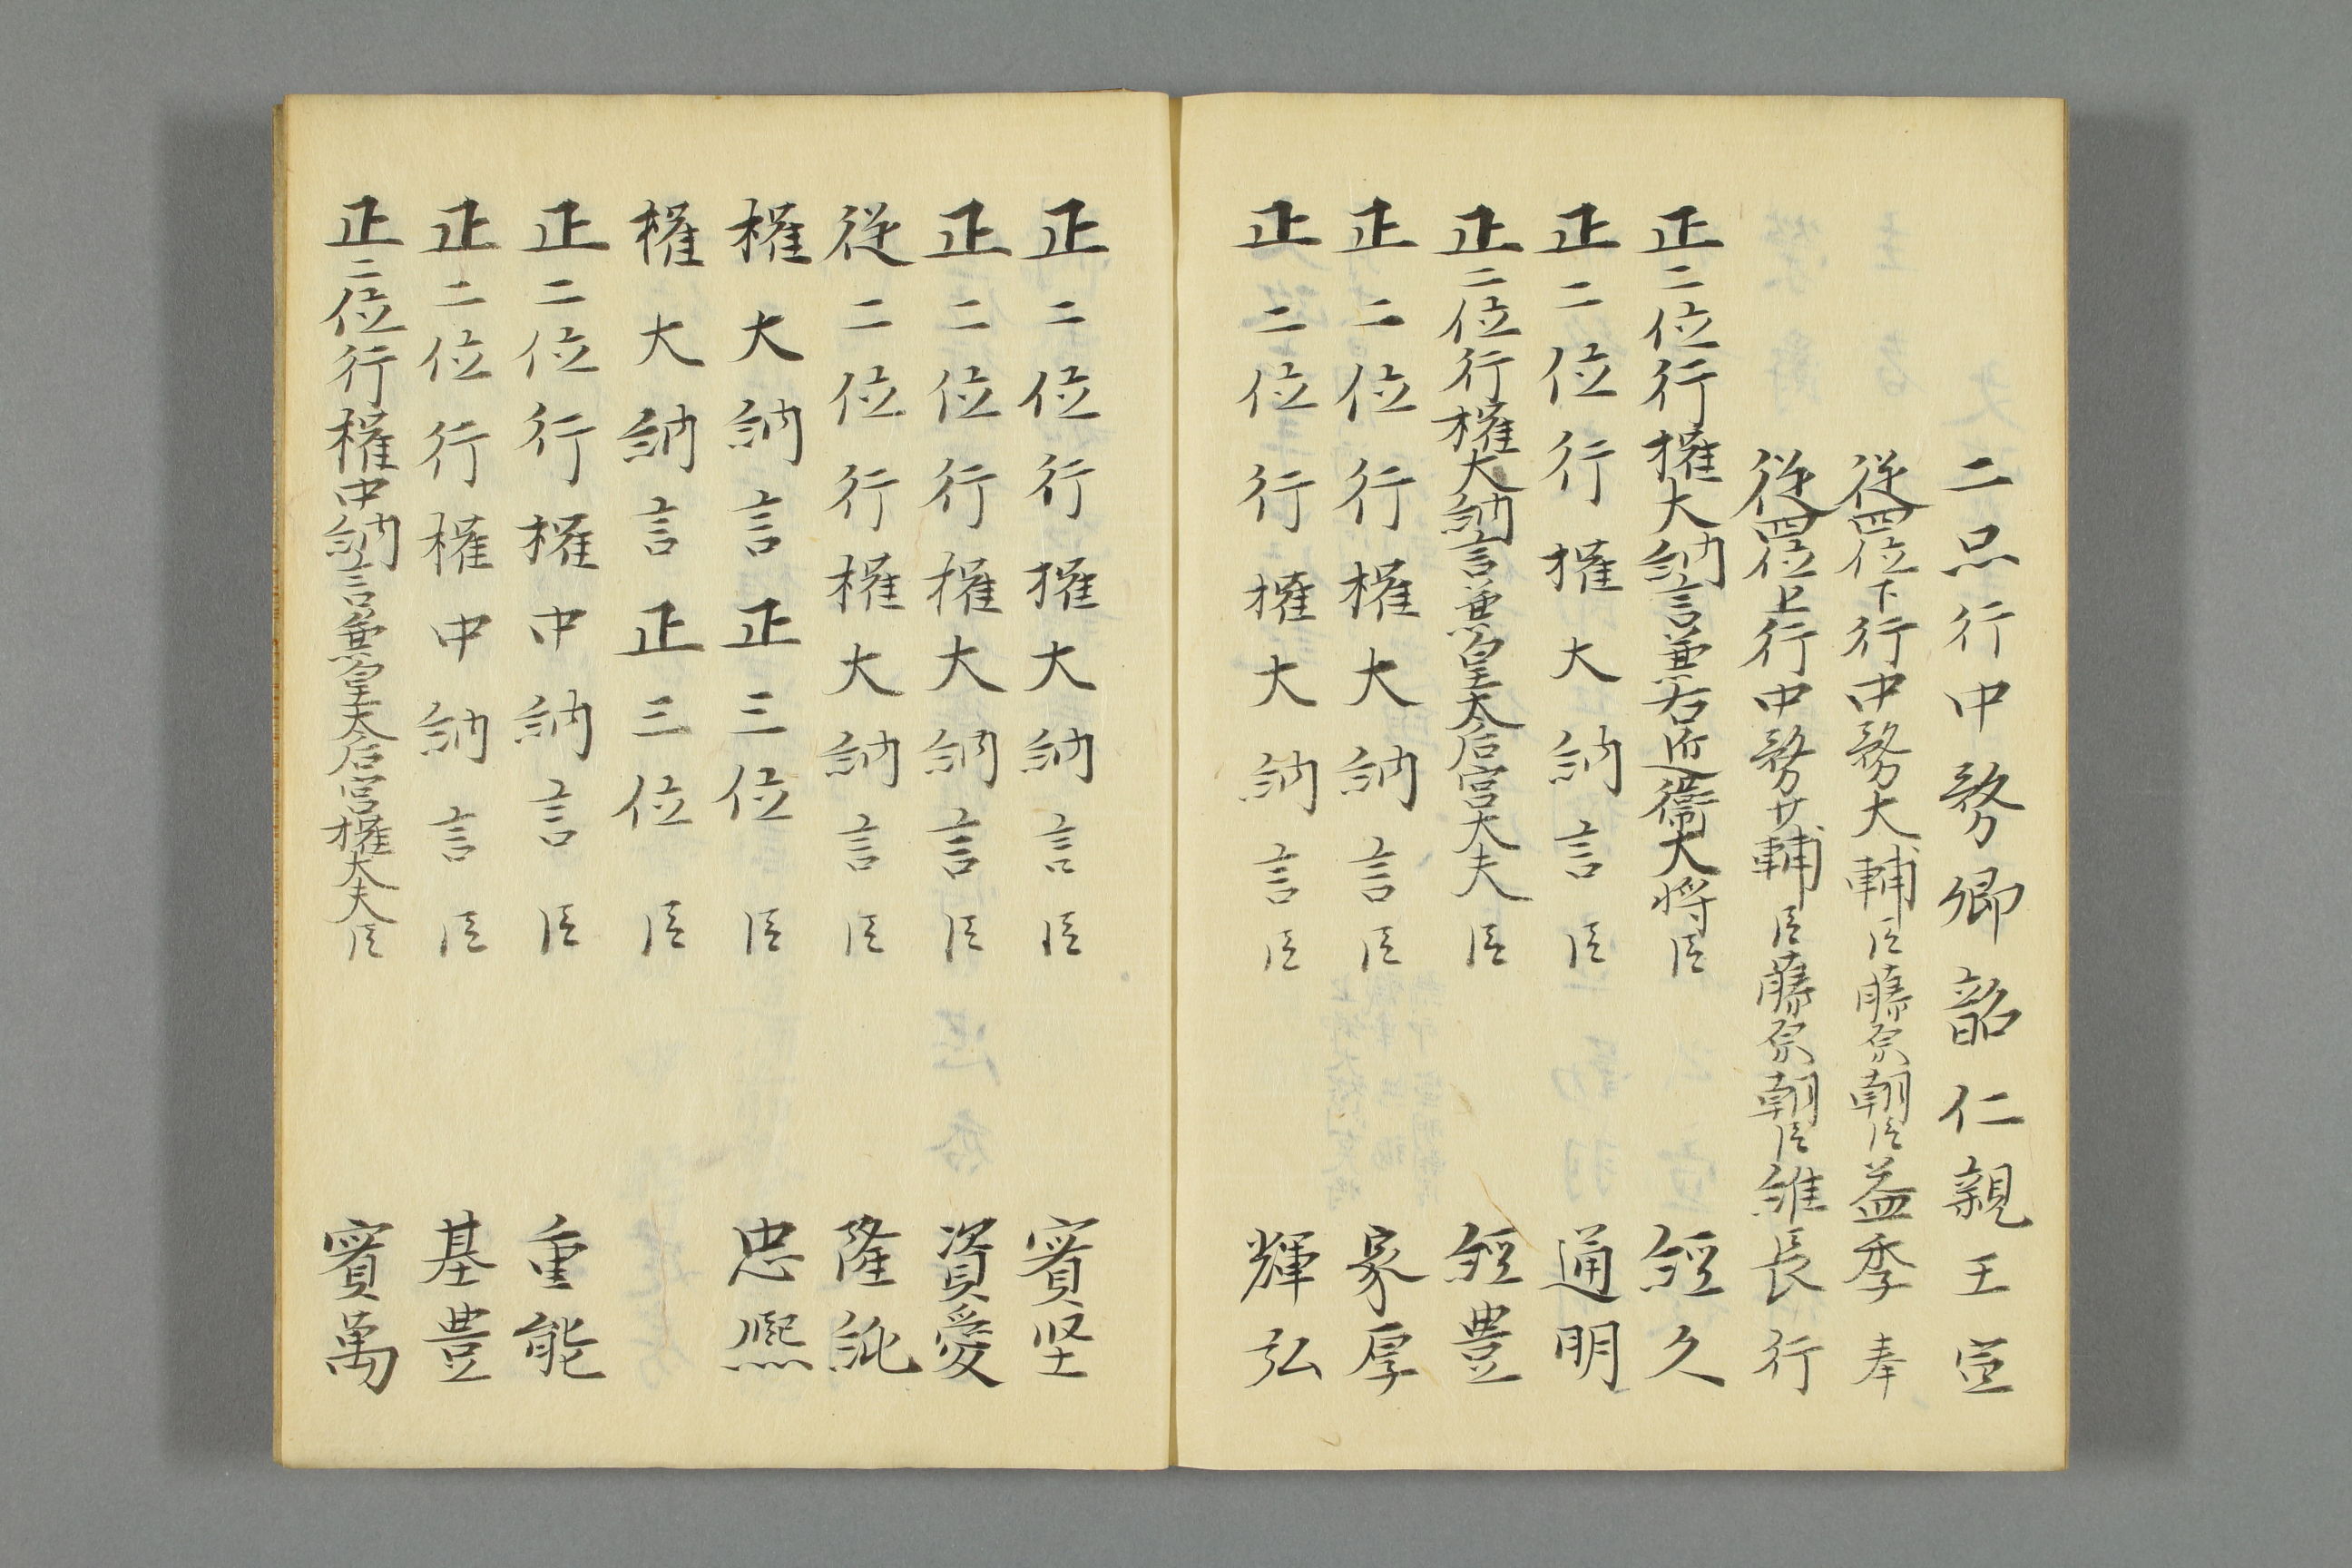 二品行中務卿韶仁親王宣
従四位下行中務大輔臣藤原朝臣益季奉
従四位上行中務少輔臣藤原朝臣維長行
正二位行権大納言兼右近衛大将臣 経久
正二位行権大納言臣 通明
正二位行権大納言兼皇太后宮大夫臣 経豊
正二位行権大納言臣 家厚
正二位行権大納言臣 輝弘
正二位行権大納言臣 實堅
正二位行権大納言臣 資愛
従二位行権大納言臣 隆純
権大納言正三位臣 忠熈
権大納言正三位臣
正二位行権中納言臣 重能
正二位行権中納言臣 基豊
正二位行権中納言兼皇太后宮権大夫臣 實萬